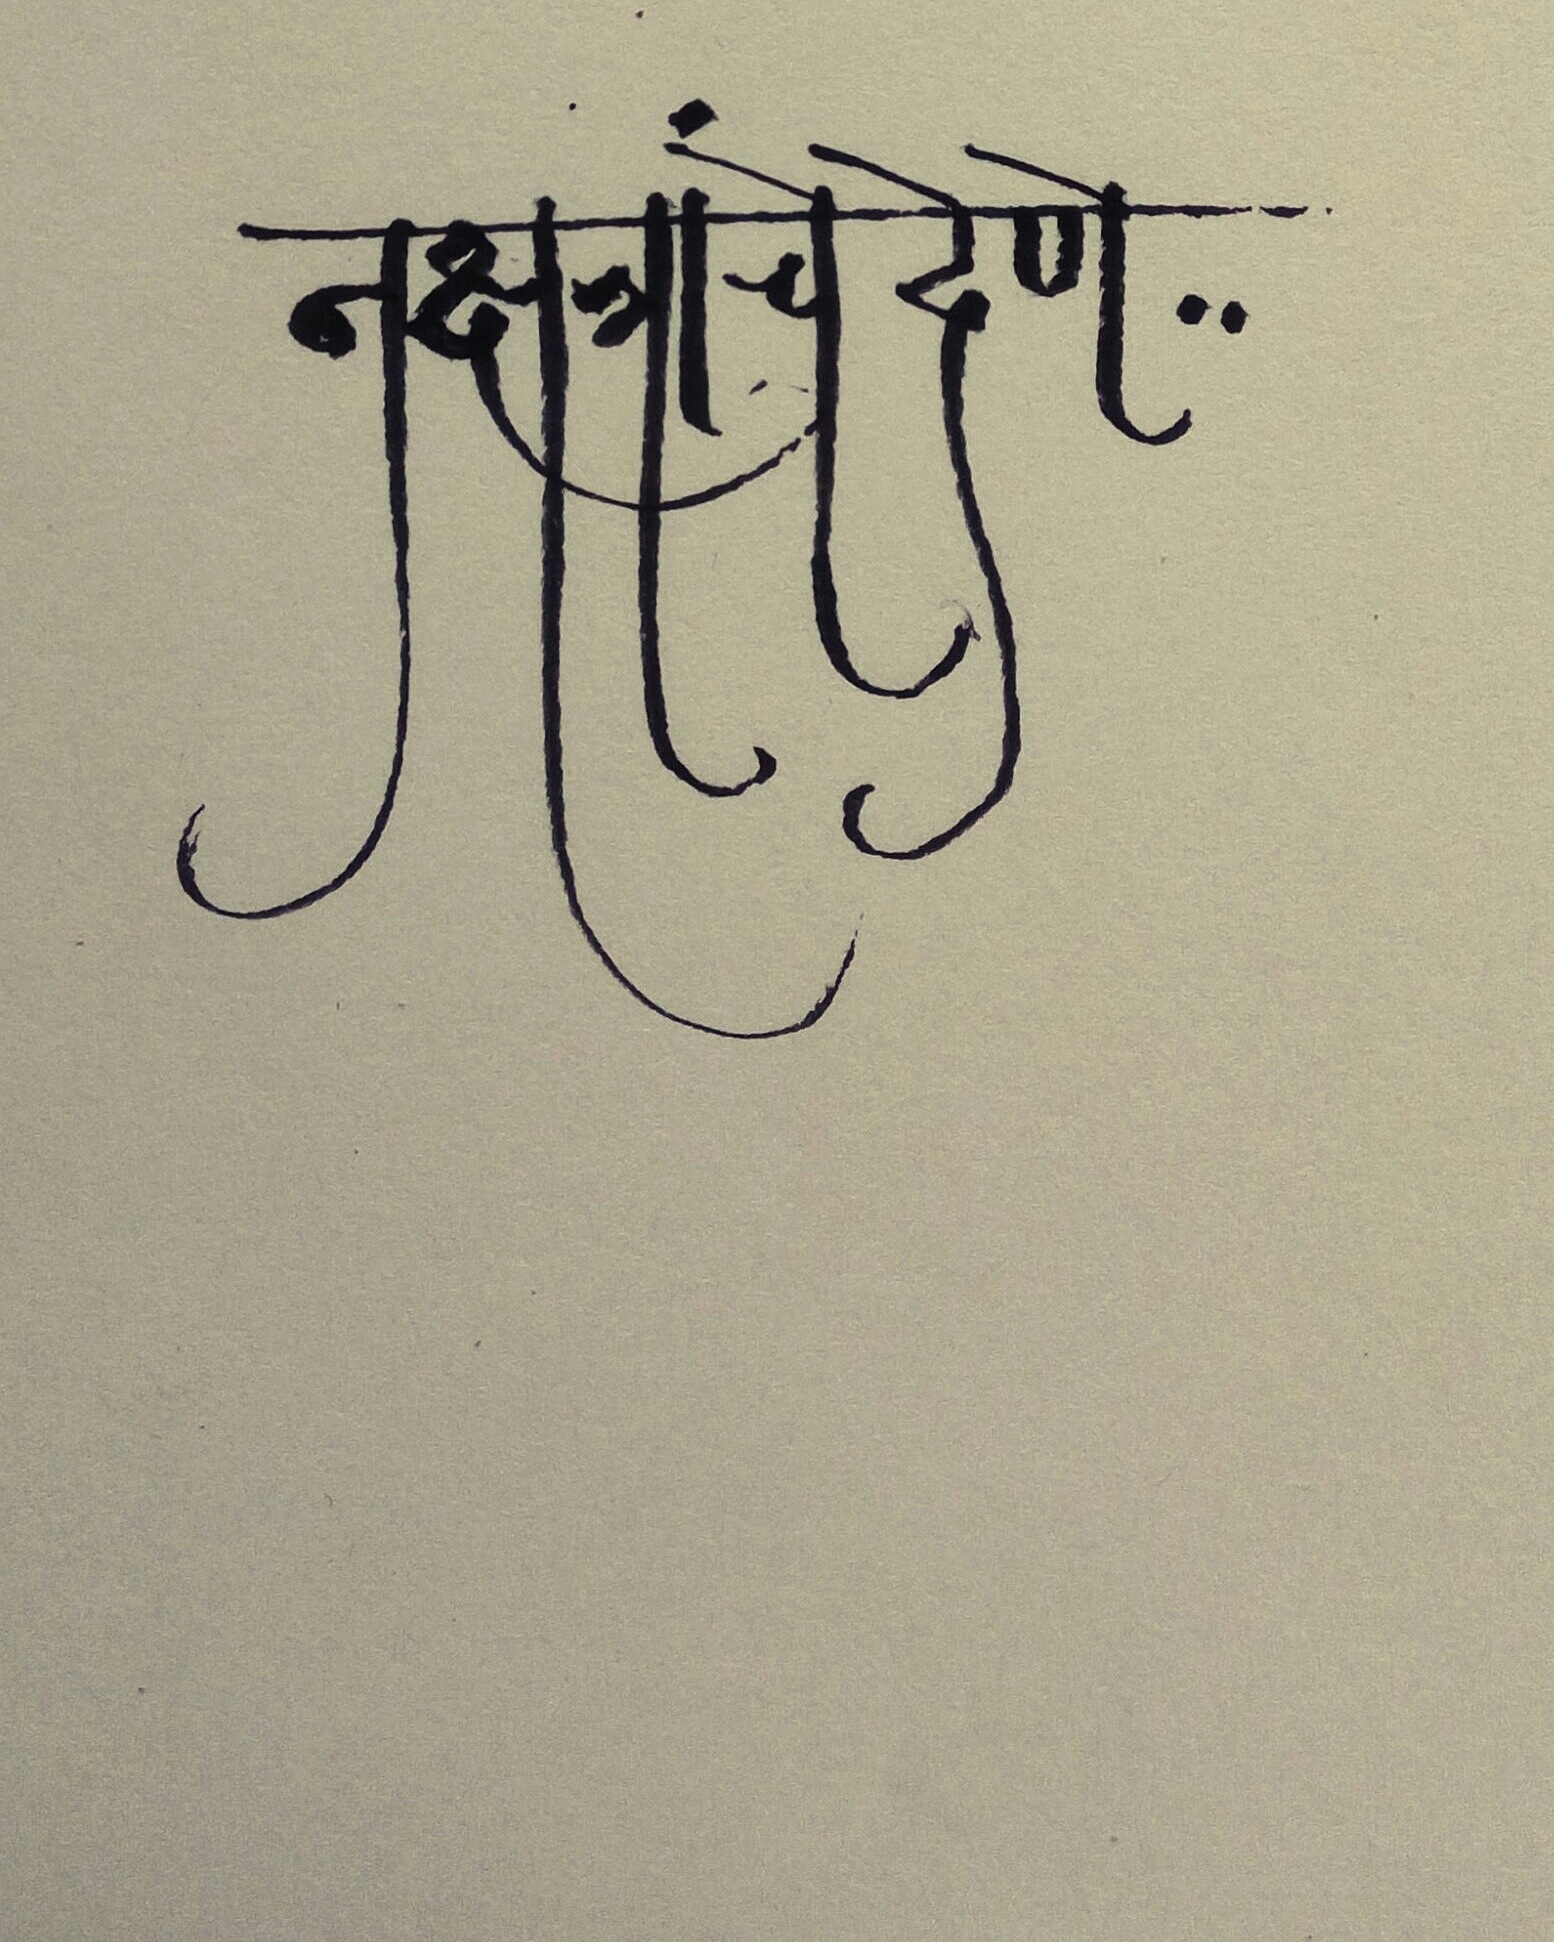 नक्षत्रांचे देणे..